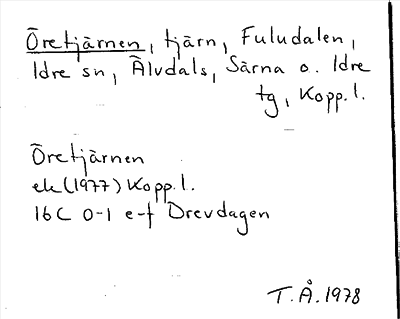 Öretjärnen, tjärn, Fuludalen,
Idre sn, Älvdals, Särna o. Idre
tg, Kopp. l.
Öretjärnen
ek (1977) Kopp. l.
16C 0-1 e-f Drevdagen
T.Å. 1978